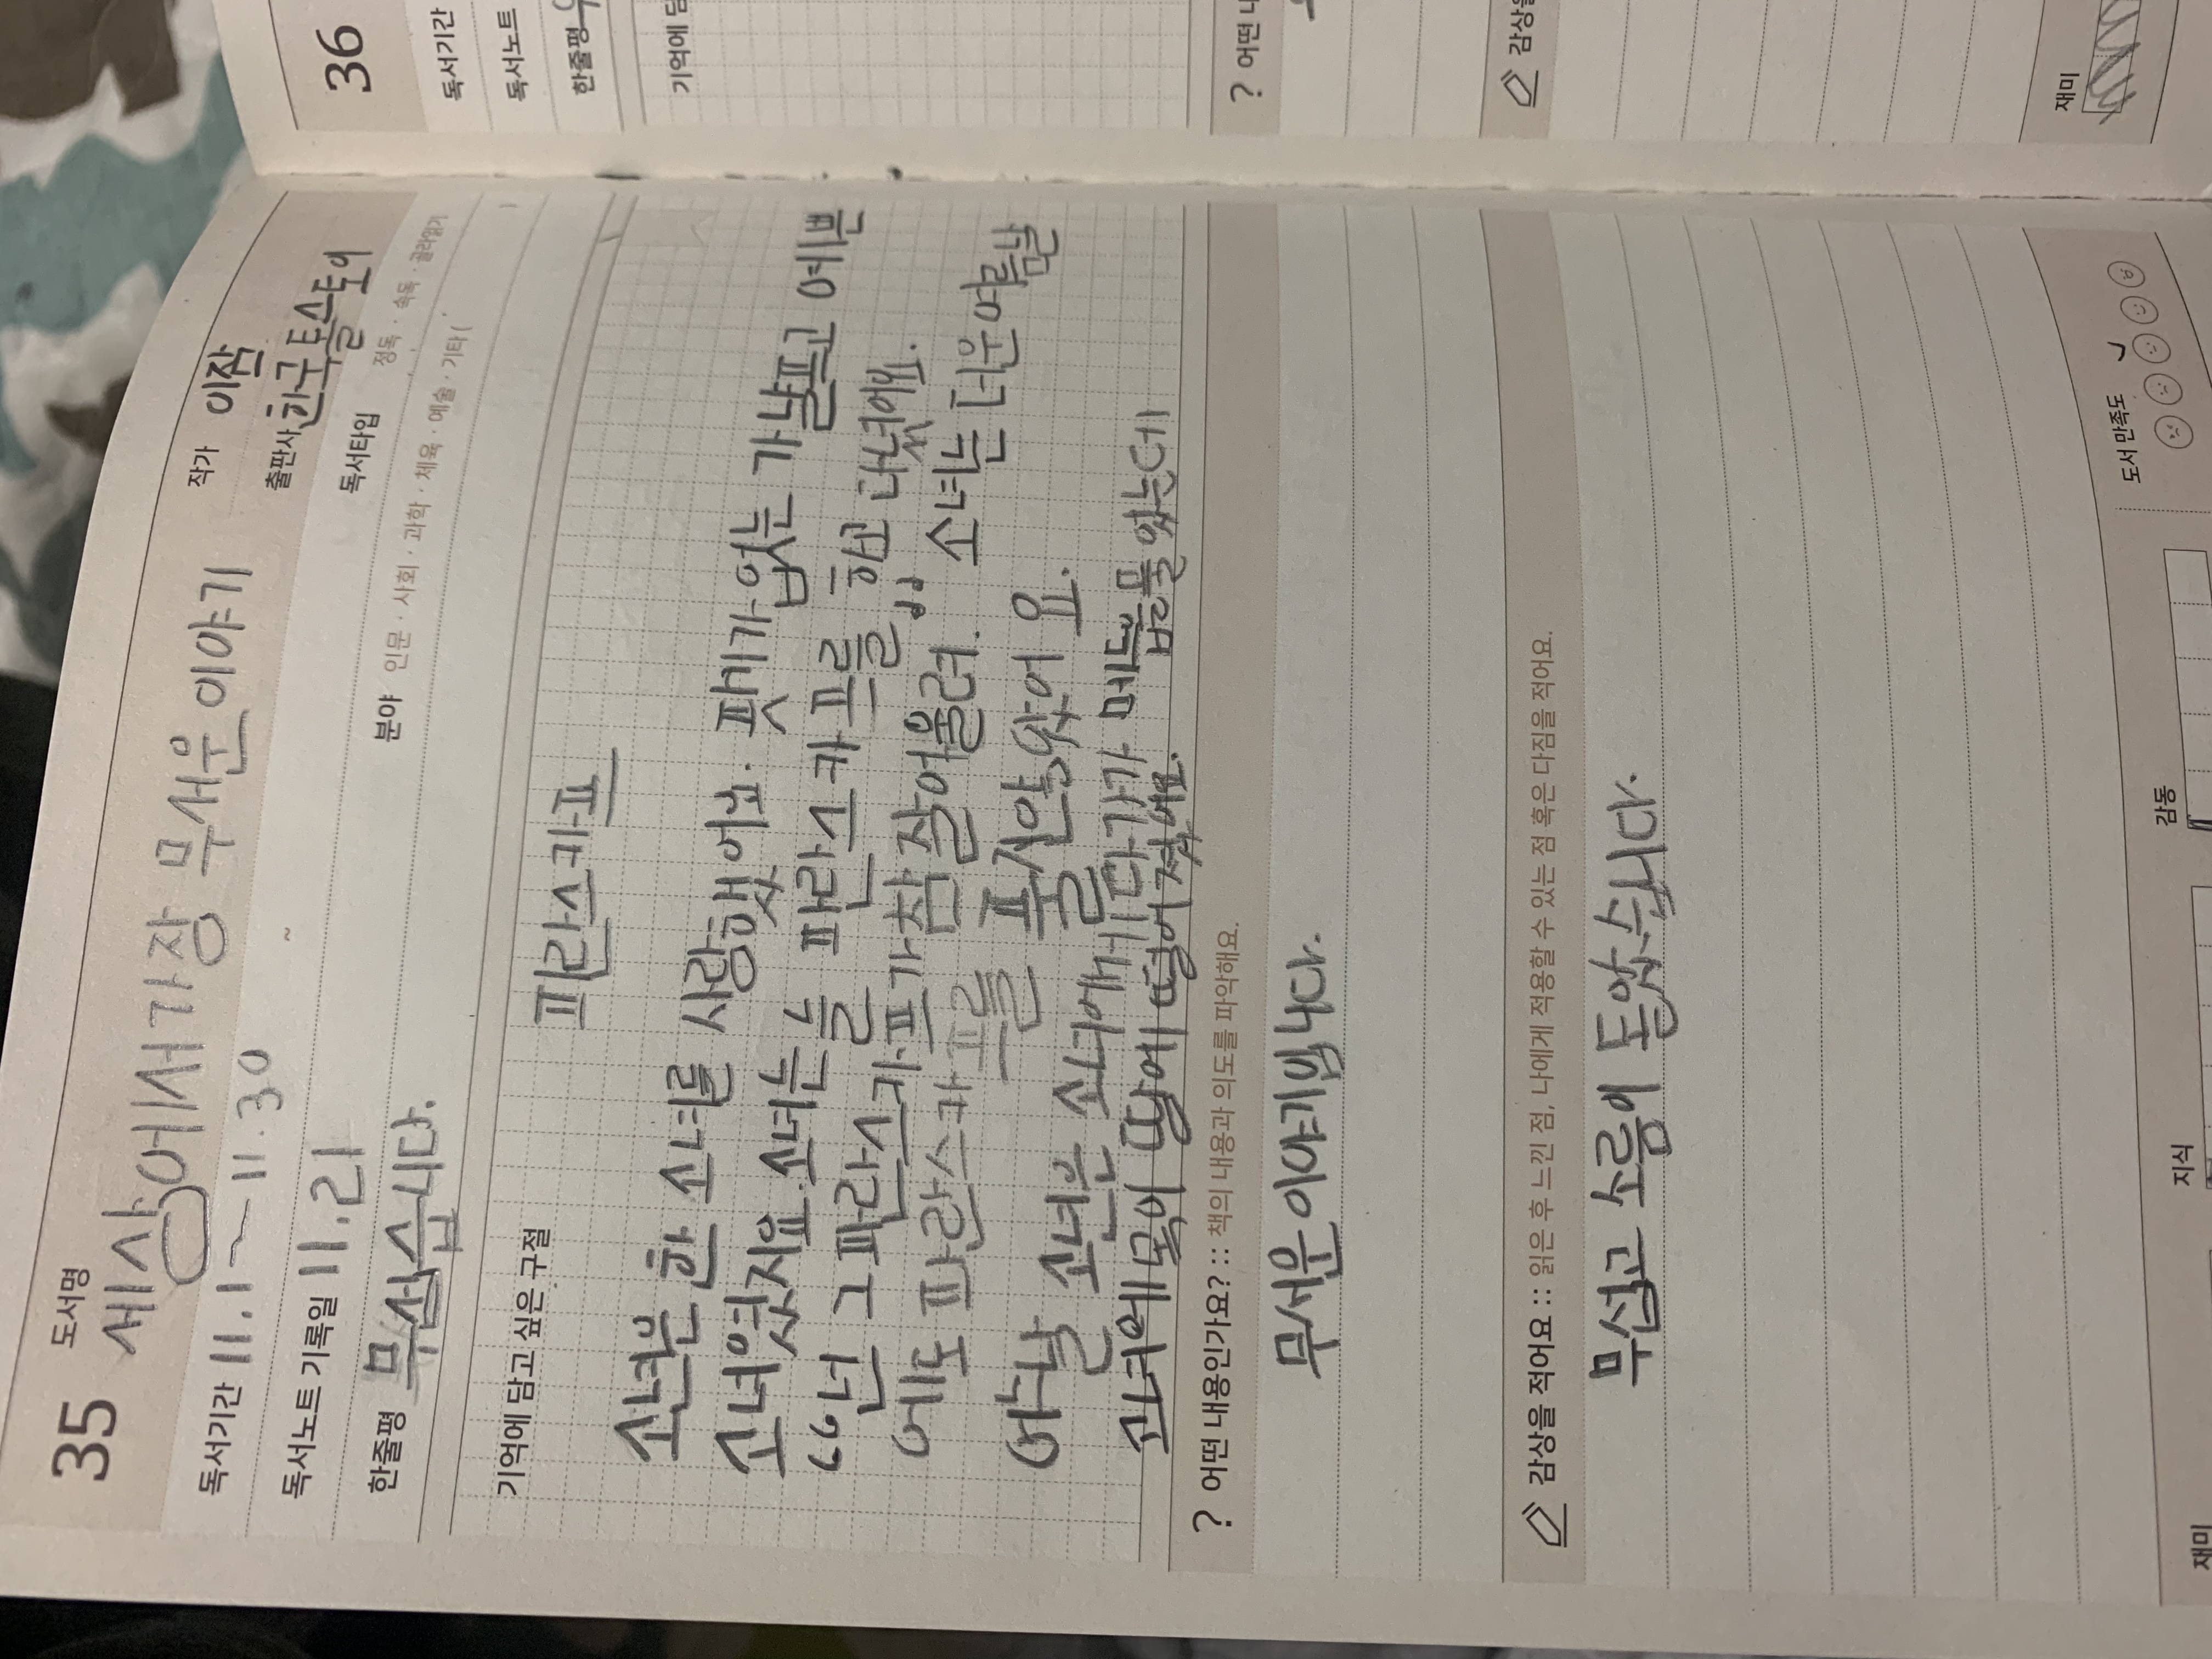 35 도서명 세상에서 가장 무서운 이야기 작가 이작
독서기간 11.1 ~ 11.30 출판사 한국톨스토이
독서노트 기록일 11.21 독서타입 정독 · 속독 · 골라읽기
한줄평 무섭습니다. 분야 인문 · 사회 · 과학 · 체육 · 예술 · 기타( )
기억에 담고 싶은 구절
파란스카프
소년은 한 소녀를 사랑했어요. 핏기가 없는 가냘프고 예쁜
소녀였지요. 소녀는 늘 파란스카프를 하고 다녔어요.
"넌 그 파란스카프가 참 잘어울려." 소녀는 더운 여름날
에도 파란스카프를 풀지 않았어요.
어느날 소년은 소녀에게 다가가 매듭을 풀었는데
소녀에 목이 땅에 떨어졌어요.
? 어떤 내용인가요? :: 책의 내용과 의도를 파악해요.
무서운 이야기입니다.
감상을 적어요 :: 읽은 후 느낀 점, 나에게 적용할 수 있는 점 혹은 다짐을 적어요.
무섭고 소름이 돋았습니다.
재미 지식 감동 도서 만족도
36
독서기간
독서노트
한줄평
기억에 담
? 어떤 내
감상을
재미